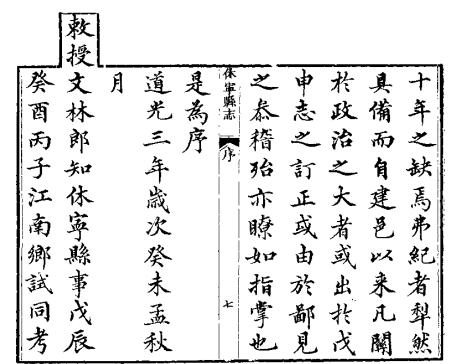 十年之缺焉弗紀者犁然
具備而自建邑以來凡關
於政治之大者或出於戊
申志之訂正或由於鄙見
之叅稽殆亦瞭如指掌也
休寧縣志
序
七
是為序
道光三年歲次癸未孟秋
月
敕授文林郎知休寧縣事戊辰
癸酉丙子江南鄉試同考